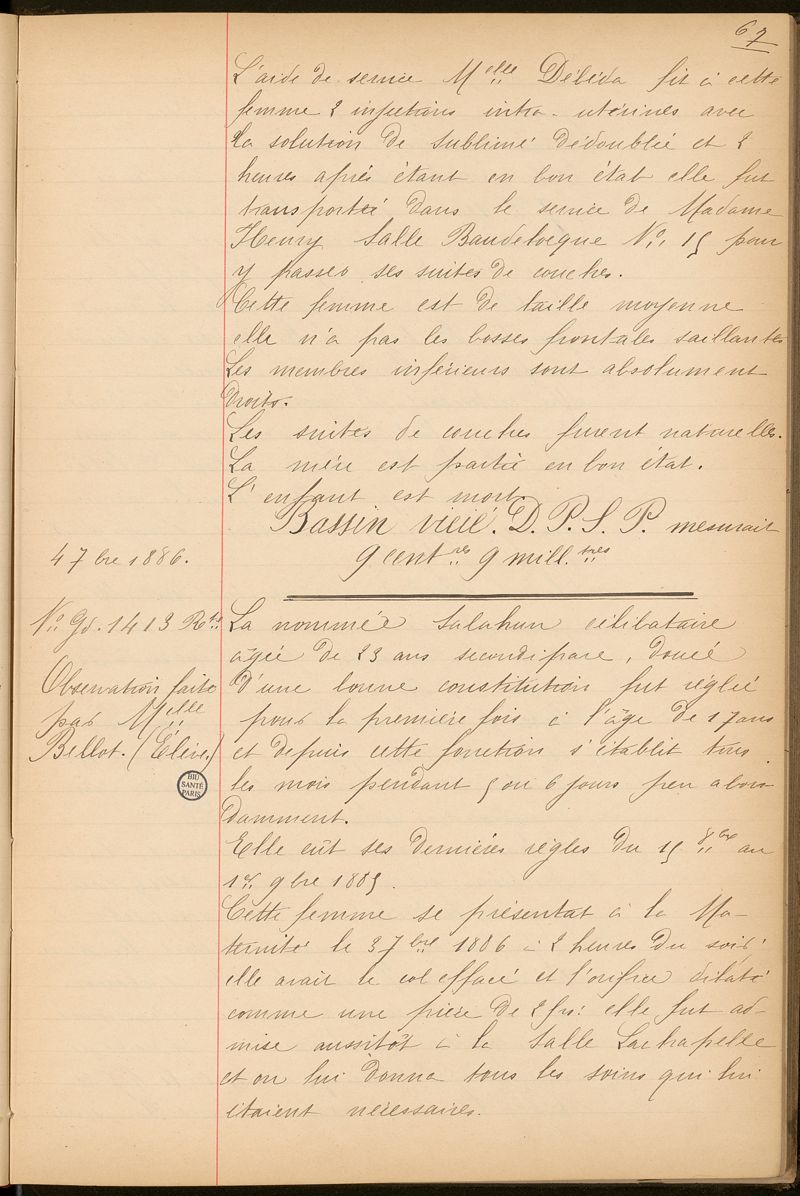 67
L'aide de service Melle Délida fit à cette
femme 2 injections intra-utérines avec
la solution de sublimé dédoublée et 2
heures après étant en bon état elle fut
transportée dans le service de Madame
Henry Salle Baudelocque No. 15 pour
y passer ses suites de couches.
Cette femme est de taille moyenne
elle n'a pas les bosses frontales saillantes
Les membres inférieurs sont absolument
droits.
Les suites de couches furent naturelles.
La mère est partie en bon état.
L'enfant est mort.
Bassin vicié. D. P. S. P. mesurait
9 cent.res 9 mill.tres
4 7bre 1886.
No. Gd. 1413 Rtre
Observation faite
par Melle
Bellot. (Élève.)
BIU
SANTÉ
PARIS
La nommée Salahun célibataire
âgée de 23 ans secondipare, douée
d'une bonne constitution fut réglée
pour la première fois à l'âge de 17 ans
et depuis cette fonction s'établit tous
les mois pendant 5 ou 6 jours peu abon
damment.
Elle eût ses dernières règles du 15 8bre au
1er 9bre 1885.
Cette femme se présentat à la Ma-
ternité le 3 7bre 1886 à 2 heures du soir.
elle avait le col effacé et l'orifice dilaté
comme une pièce de 2 frs: elle fut ad-
mise aussitôt à la Salle Lachapelle
et on lui donna tous les soins qui lui
étaient nécessaires.